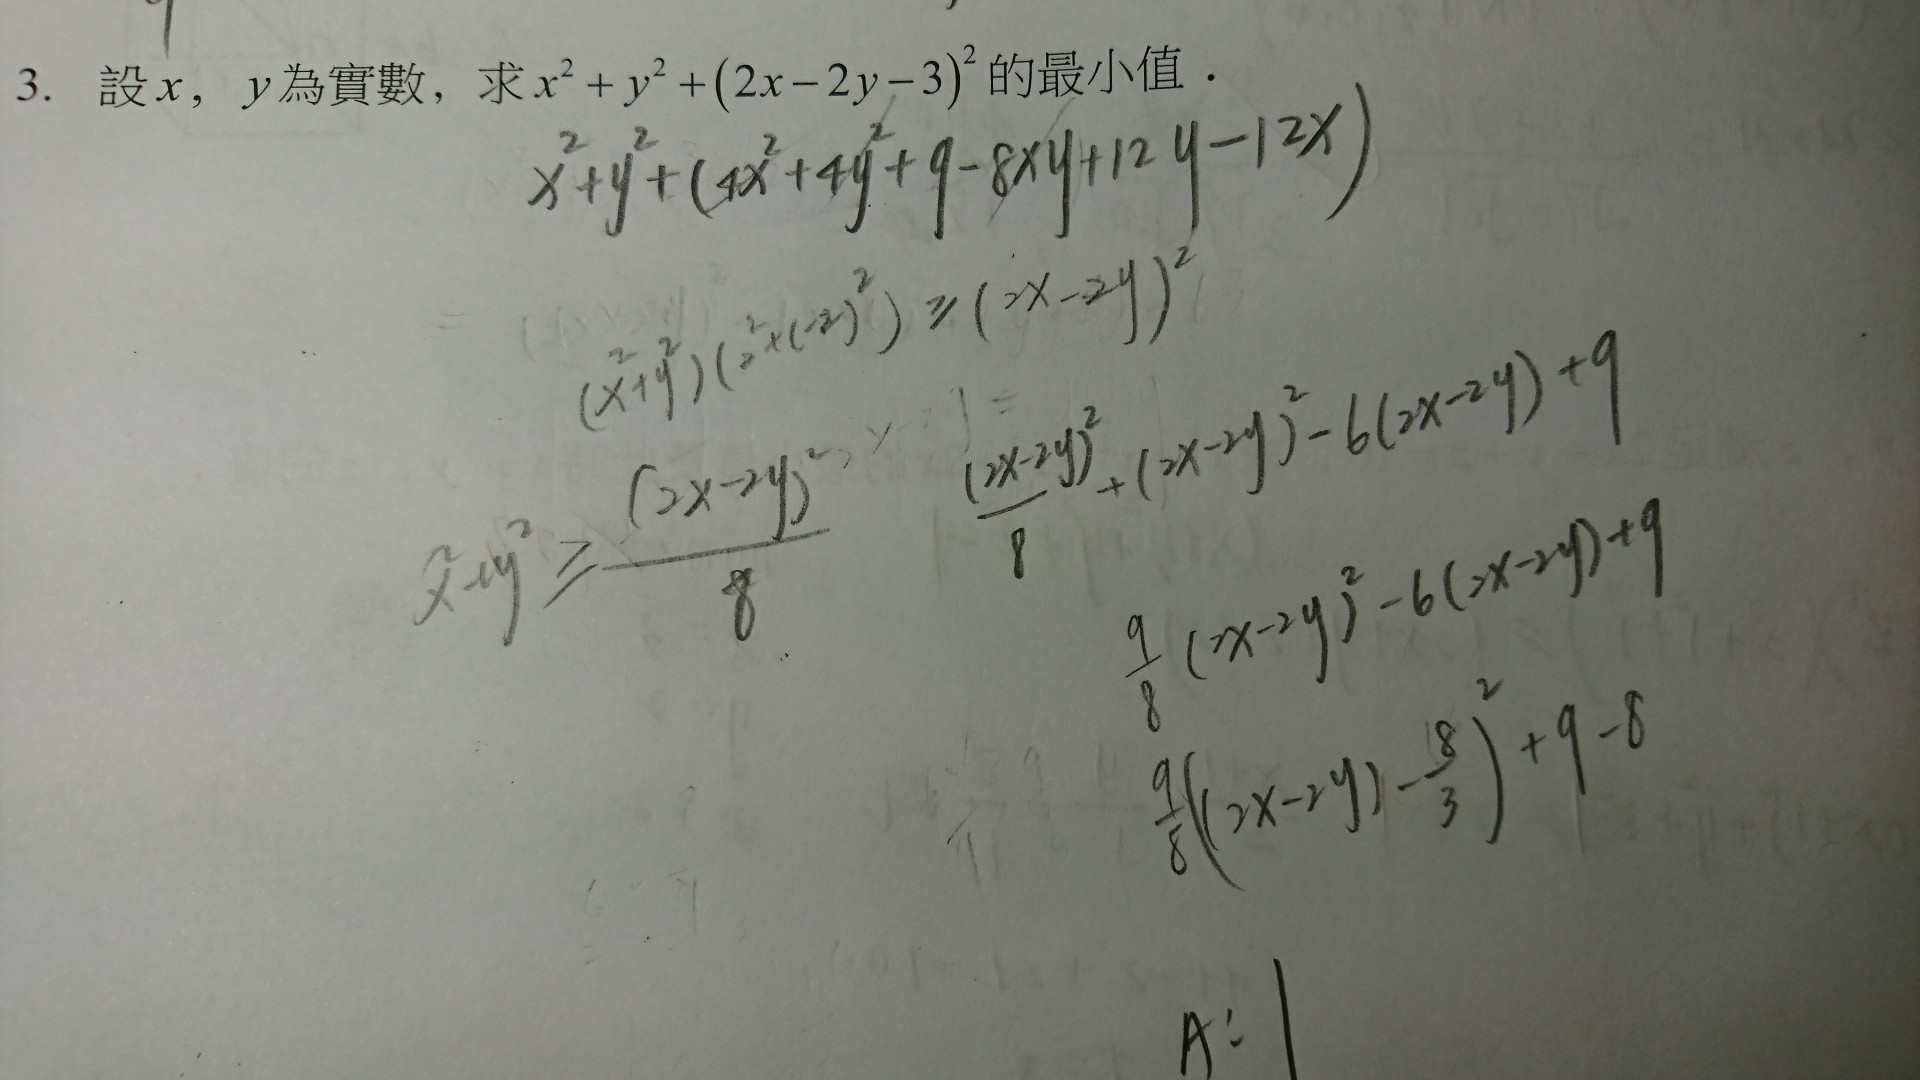 3. 設x，y為實數，求x²+y²+(2x−2y−3)²的最小值．
x²+y²+(4x²+4y²+9-8xy+12y-12x)
(x²+y²)(2²+(-2)²) ≥ (2x-2y)²
x²+y² ≥ (2x-2y)²/8
(2x-2y)²/8 + (2x-2y)² - 6(2x-2y) + 9
9/8 (2x-2y)² - 6(2x-2y) + 9
9/8 ((2x-2y) - 8/3)² + 9 - 8
A: 1